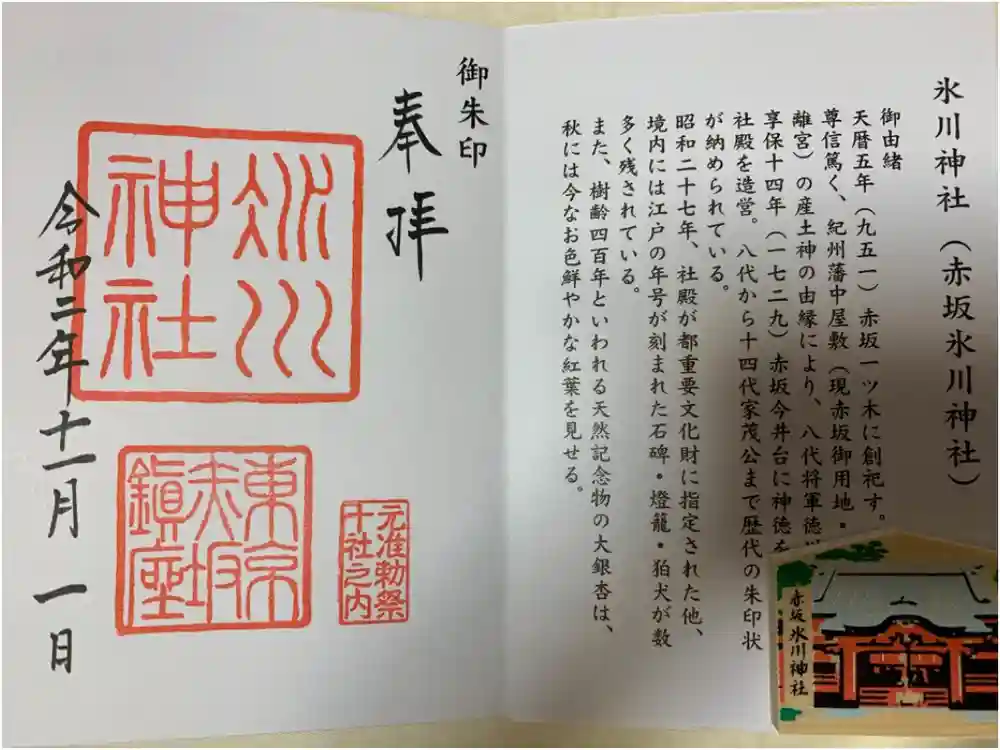 氷川神社（赤坂氷川神社）
御由緒
天暦五年（九五一）赤坂一ツ木に創祀す。
尊信篤く、紀州藩中屋敷（現赤坂御用地・
離宮）の産土神の由縁により、八代将軍徳
享保十四年（一七二九）赤坂今井台に神徳を
社殿を造営。八代から十四代家茂公まで歴代の朱印状
が納められている。
昭和二十七年、社殿が都重要文化財に指定された他、
境内には江戸の年号が刻まれた石碑・燈籠・狛犬が数
多く残されている。
また、樹齢四百年といわれる天然記念物の大銀杏は、
秋には今なお色鮮やかな紅葉を見せる。
赤坂氷川神社
御朱印
奉拝
元准勅祭
十社之内
氷川
神社
東京
赤坂
鎭座
令和二年十一月一日